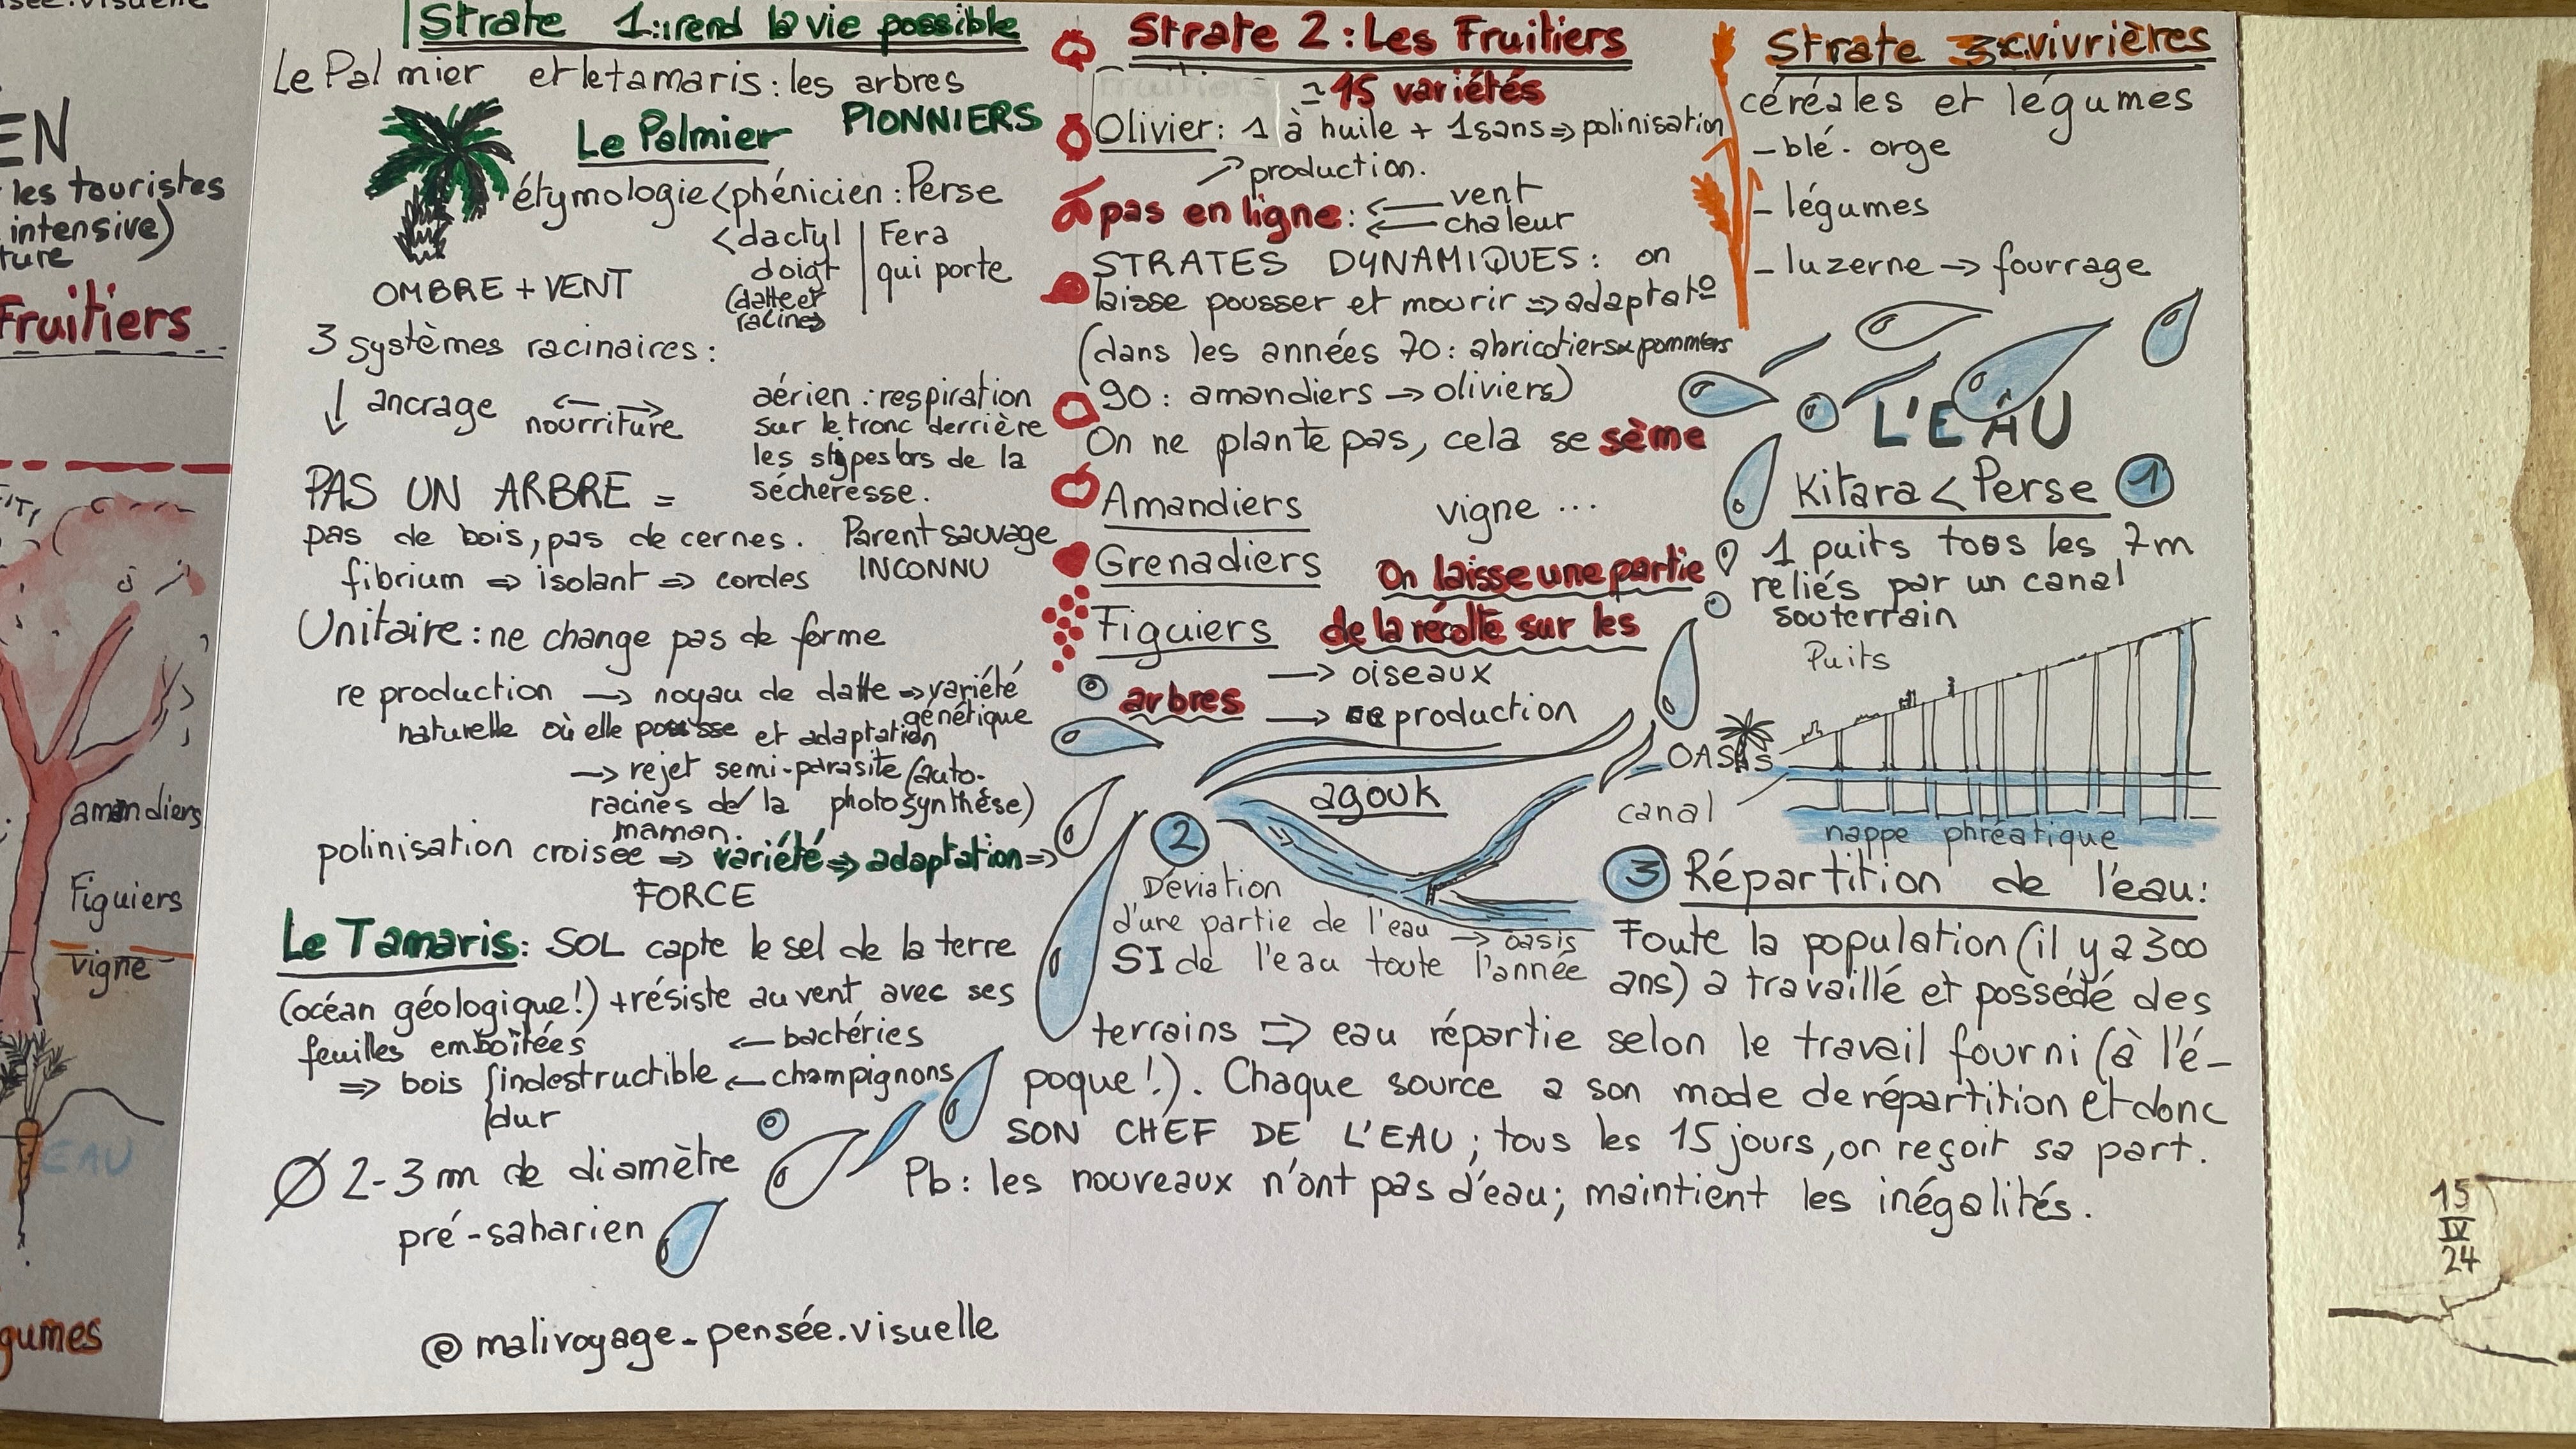 EN
les touristes
intensive)
ture
Fruitiers
amandiers
Figuiers
vigne
EAU
gumes
Strate 1: rend la vie possible
Le Palmier et le tamaris : les arbres
PIONNIERS
Le Palmier
étymologie < phénicien : Perse
< dactyl | Fera
doigt | qui porte
(datte et
racines)
OMBRE + VENT
3 systèmes racinaires :
↓ ancrage
← →
nourriture
aérien : respiration
sur le tronc derrière
les stypes lors de la
sécheresse.
PAS UN ARBRE =
pas de bois, pas de cernes.
fibrium ⇒ isolant ⇒ cordes
Parent sauvage
INCONNU
Unitaire : ne change pas de forme
reproduction → noyau de datte ⇒ variété
génétique
naturelle où elle pousse et adaptation
→ rejet semi-parasite (auto-
racines de la photosynthèse)
maman.
polinisation croisée ⇒ variété ⇒ adaptation ⇒
FORCE
Le Tamaris : SOL capte le sel de la terre
(océan géologique!) + résiste au vent avec ses
feuilles emboîtées
← bactéries
⇒ bois { indestructible ← champignons
dur
Ø 2-3 m de diamètre
pré-saharien
@malivoyage_pensée.visuelle
Strate 2 : Les Fruitiers
≃ 15 variétés
Olivier : 1 à huile + 1 sans ⇒ polinisation
↗ production.
pas en ligne : ← vent
← chaleur
STRATES DYNAMIQUES : on
laisse pousser et mourir ⇒ adaptat°
(dans les années 70 : abricotiers x pommiers
90 : amandiers → oliviers)
On ne plante pas, cela se sème
Amandiers
vigne ...
Grenadiers
Figuiers
On laisse une partie
de la récolte sur les
arbres
→ oiseaux
→ reproduction
Strate 3: c.vivrières
céréales et légumes
- blé - orge
- légumes
- luzerne → fourrage
L'EAU
Kitara < Perse 1
1 puits tous les 7m
reliés par un canal
souterrain
Puits
OASIS
canal
nappe phréatique
2
agouk
Déviation
d'une partie de l'eau → oasis
SI de l'eau toute l'année
3 Répartition de l'eau :
Toute la population (il y a 300
ans) a travaillé et possédé des
terrains ⇒ eau répartie selon le travail fourni (à l'é-
poque!). Chaque source a son mode de répartition et donc
SON CHEF DE L'EAU ; tous les 15 jours, on reçoit sa part.
Pb : les nouveaux n'ont pas d'eau ; maintient les inégalités.
15
IV
24